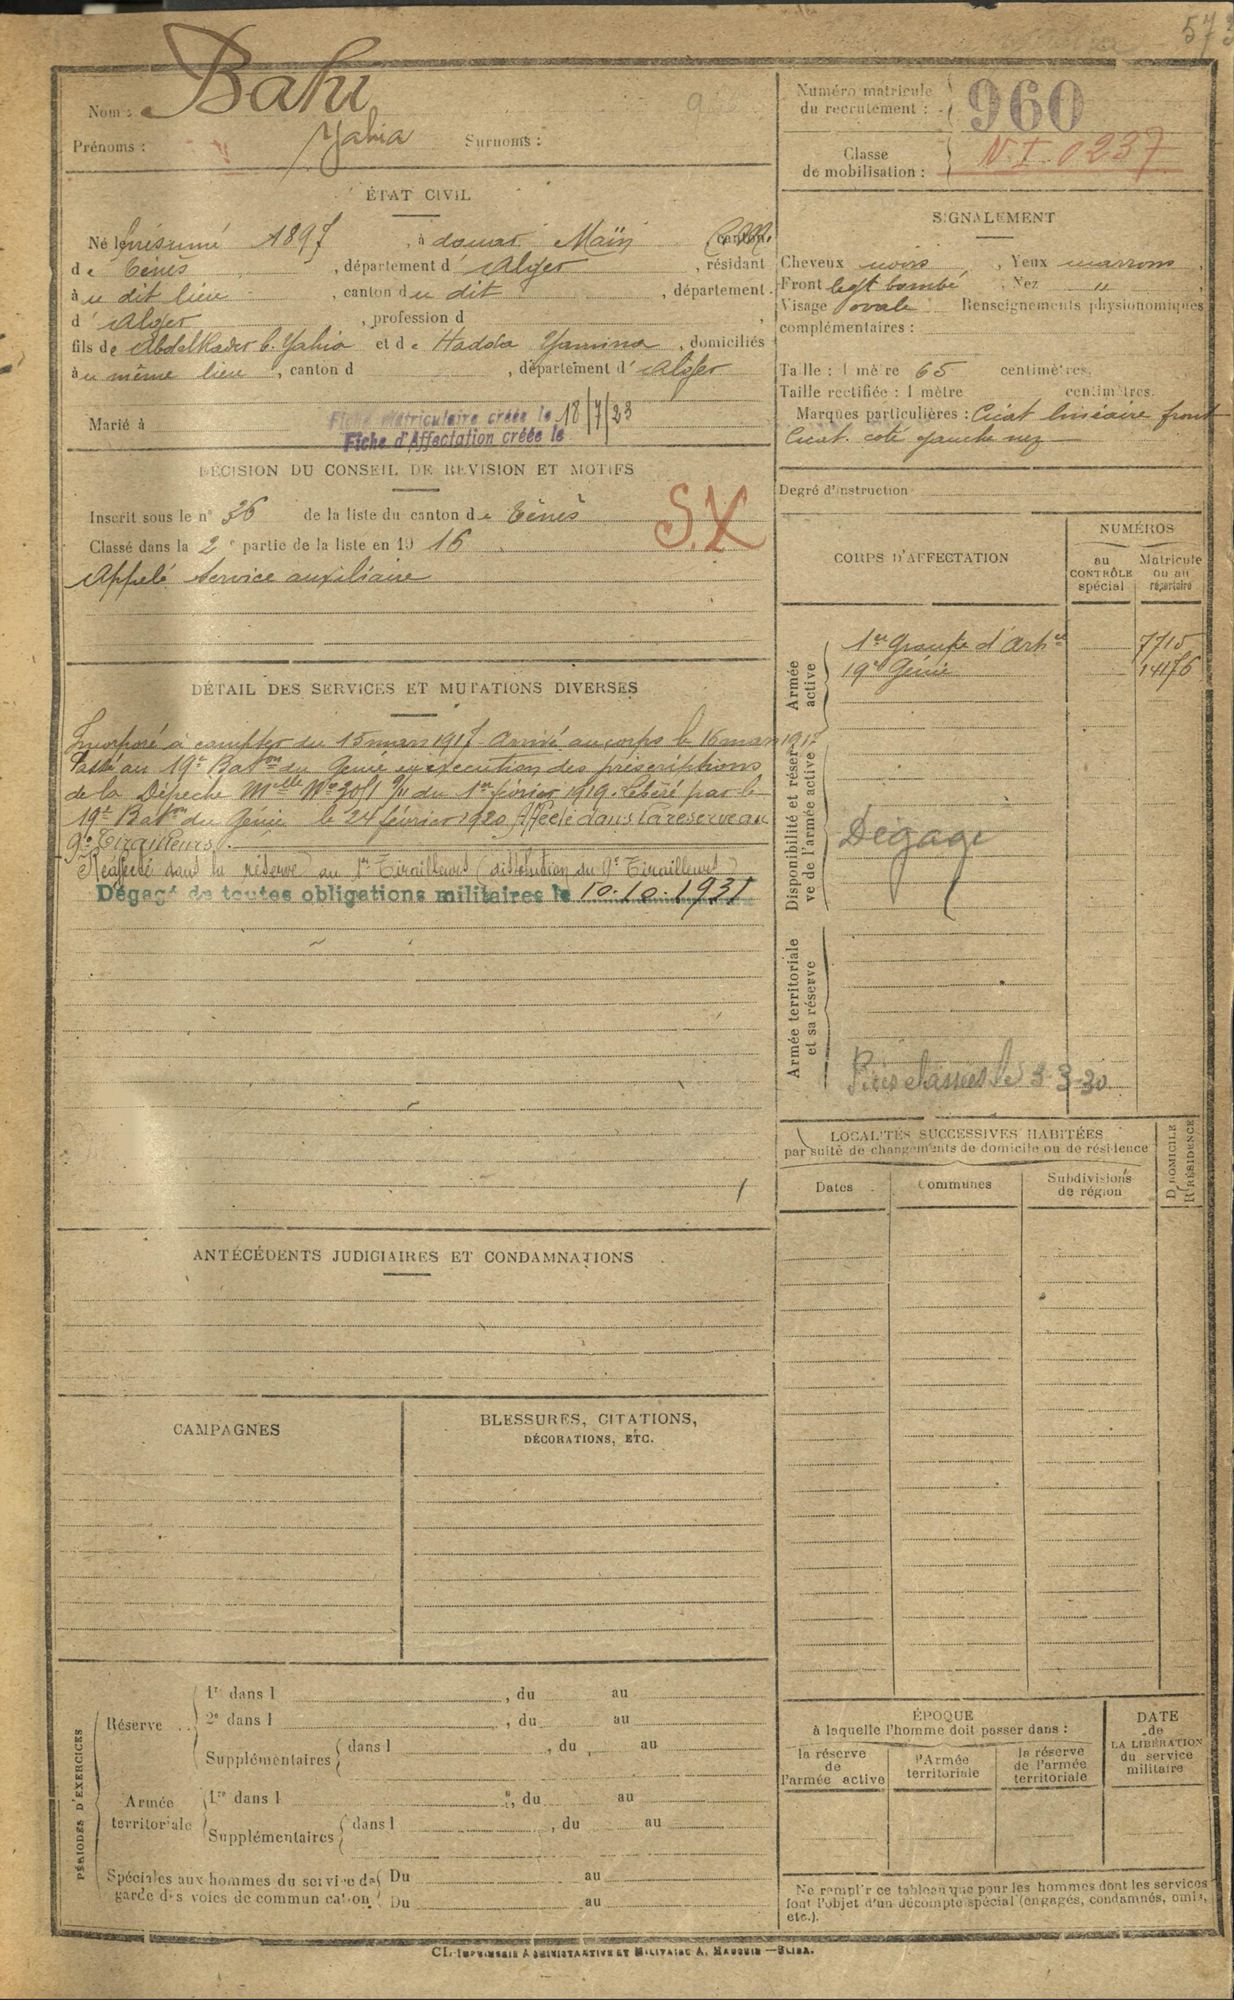 573
Nom : Bahi
Prénoms : Yahia Surnoms :
Numéro matricule
du recrutement : 960
Classe
de mobilisation : N.I. 0237
ÉTAT CIVIL
Né le présumé 1897, à douar Maïn canton
de Ténès, département d'Alger, résidant
à u dit lieu, canton du dit, département
d'Alger, profession d
fils de Abdelkader b. Yahia et de Hadda Yamina, domiciliés
à u même lieu, canton d , département d'Alger
Marié à
Fiche Matriculaire créée le 18/7/23
Fiche d'Affectation créée le
DÉCISION DU CONSEIL DE RÉVISION ET MOTIFS
Inscrit sous le n° 36 de la liste du canton de Ténès
Classé dans la 2e partie de la liste en 1916
Appelé Service auxiliaire
S.X
DÉTAIL DES SERVICES ET MUTATIONS DIVERSES
Incorporé à compter du 15 mars 1917 arrivé au corps le 16 mars 1917
Passé au 19e Baton du Génie en exécution des préscriptions
de la Dépêche Melle No 3051 9/11 du 1er février 1919. Libéré par le
19e Baton du Génie le 24 février 1920 Affecté dans la réserve au
9e Tirailleurs.
Réaffecté dans la réserve au 1er Tirailleurs (dissolution du 9e Tirailleurs)
Dégagé de toutes obligations militaires le 10.10.1931
ANTÉCÉDENTS JUDICIAIRES ET CONDAMNATIONS
CAMPAGNES
BLESSURES, CITATIONS,
DÉCORATIONS, ETC.
PÉRIODES D'EXERCICES
Réserve
1re dans l , du au
2e dans l , du au
Supplémentaires dans l , du au
Armée
territoriale
1re dans l , du au
Supplémentaires dans l , du au
Spéciales aux hommes du service de Du au
garde des voies de communication Du au
SIGNALEMENT
Cheveux noirs, Yeux marrons,
Front legt bombé, Nez "
Visage ovale Renseignements physionomiques
complémentaires :
Taille : 1 mètre 65 centimètres.
Taille rectifiée : 1 mètre centimètres.
Marques particulières : Cicat linéaire front
Cicat. coté gauche nez
Degré d'instruction
CORPS D'AFFECTATION
NUMÉROS
au CONTRÔLE spécial
Matricule ou au répertoire
Armée active
1er Groupe d'Artie 7715
19e Génie 14176
Disponibilité et réserve de l'armée active
Dégagé
Armée territoriale et sa réserve
classées le 3-3-30
LOCALITÉS SUCCESSIVES HABITÉES
par suite de changements de domicile ou de résidence
D DOMICILE
R RÉSIDENCE
Dates
Communes
Subdivisions
de région
ÉPOQUE
à laquelle l'homme doit passer dans :
la réserve
de
l'armée active
l'Armée
territoriale
la réserve
de l'armée
territoriale
DATE
de
LA LIBÉRATION
du service
militaire
Ne remplir ce tableau que pour les hommes dont les services
font l'objet d'un décompte spécial (engagés, condamnés, omis,
etc.).
IMPRIMERIE ADMINISTRATIVE ET MILITAIRE A. MAUGUIN — BLIDA.